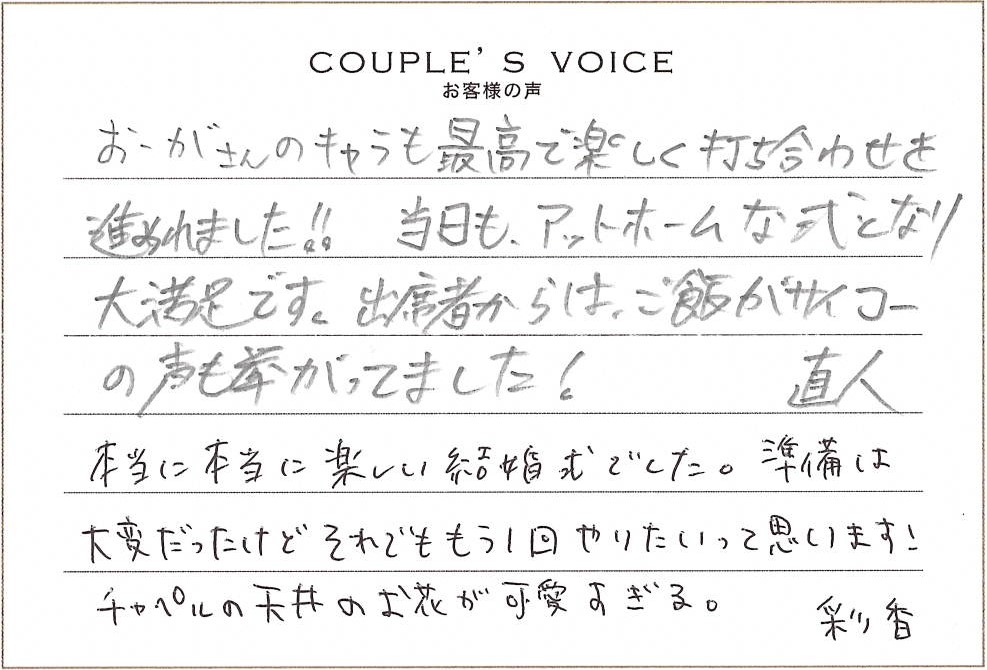 COUPLE'S VOICE
お客様の声
おーがさんのキャラも最高で楽しく打ち合わせを
進められました!! 当日も、アットホームな式となり
大満足です。出席者からは、ご飯がサイコー
の声も挙がってました!
直人
本当に本当に楽しい結婚式でした。準備は
大変だったけどそれでももう1回やりたいって思います!
チャペルの天井のお花が可愛すぎる。
彩香